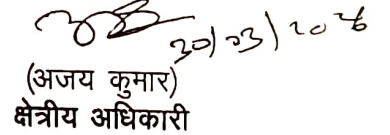 30/03/2026
(अजय कुमार)
क्षेत्रीय अधिकारी